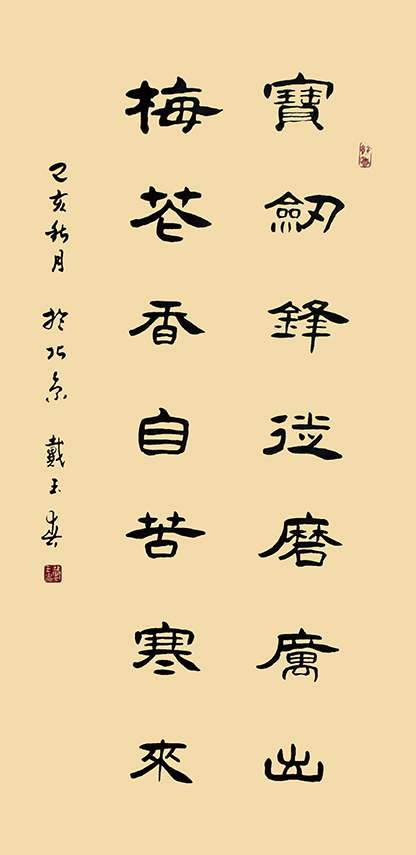 寶劒鋒從磨厲出
梅花香自苦寒來
己亥秋月 於北京 戴玉春